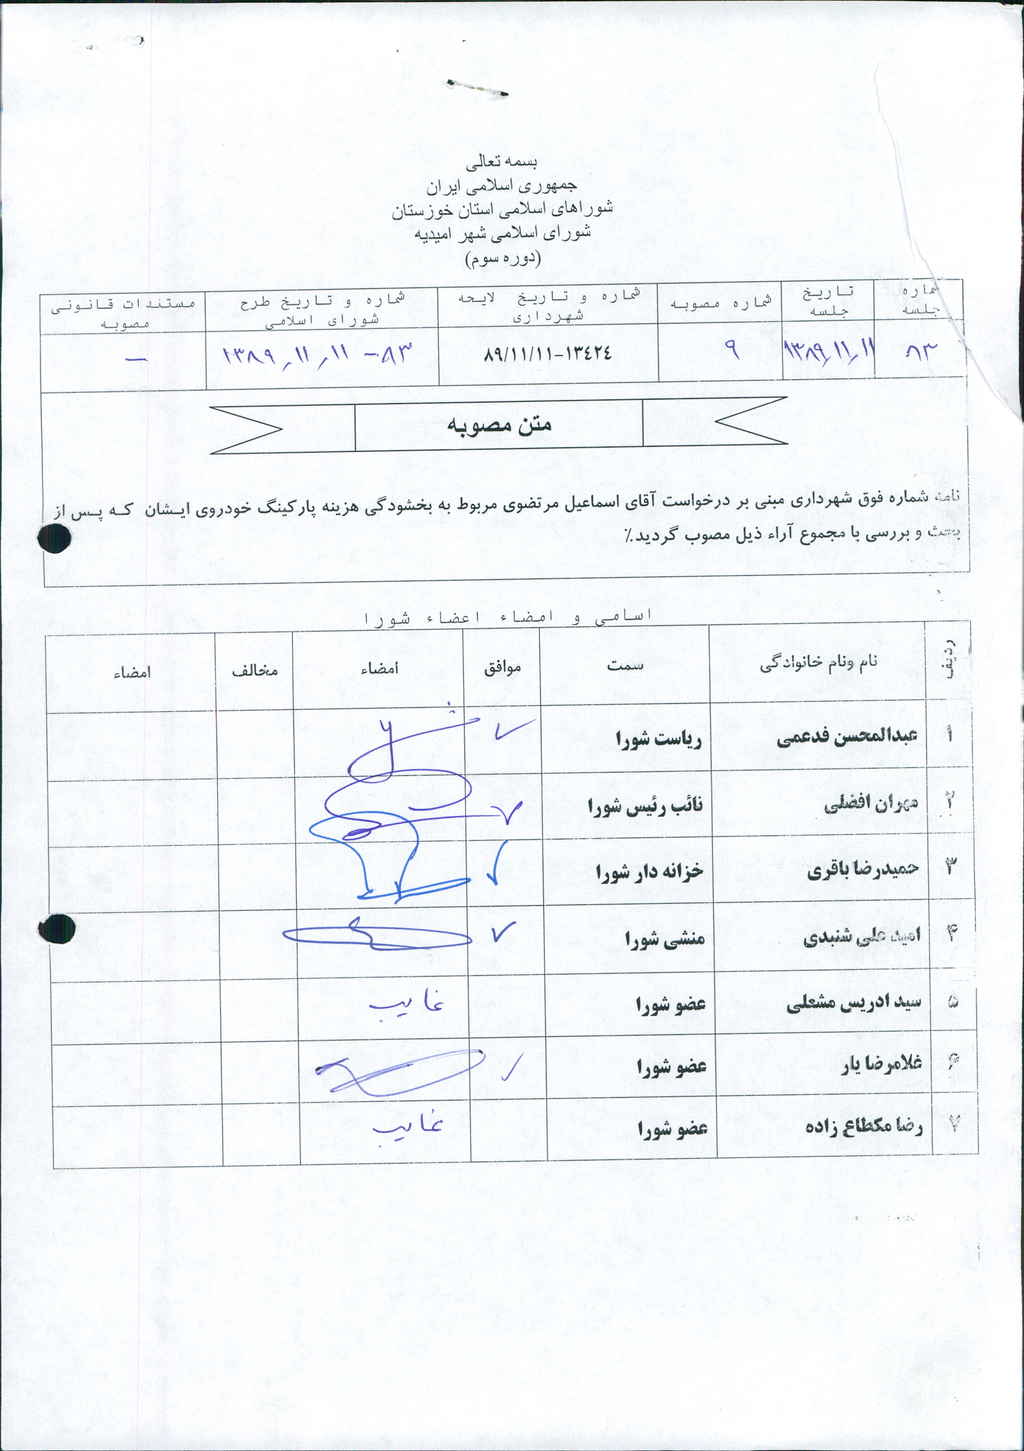 بسمه تعالی
جمهوری اسلامی ایران
شوراهای اسلامی استان خوزستان
شورای اسلامی شهر امیدیه
(دوره سوم)
شماره جلسه
تاریخ جلسه
شماره مصوبه
شماره و تاریخ لایحه شهرداری
شماره و تاریخ طرح شورای اسلامی
مستندات قانونی مصوبه
۸۳
۱۳۸۹٫۱۱٫۱۱
۹
۸۹/۱۱/۱۱-۱۳٤۲٤
۸۳ - ۱۱ ٫ ۱۱ ٫ ۱۳۸۹
—
متن مصوبه
نامه شماره فوق شهرداری مبنی بر درخواست آقای اسماعیل مرتضوی مربوط به بخشودگی هزینه پارکینگ خودروی ایشان که پس از
بحث و بررسی با مجموع آراء ذیل مصوب گردید٪
اسامی و امضاء اعضاء شورا
ردیف نام ونام خانوادگی سمت موافق امضاء مخالف امضاء
۱ عبدالمحسن فدعمی ریاست شورا ✓
۲ مهران افضلی نائب رئیس شورا ✓
۳ حمیدرضا باقری خزانه دار شورا ✓
۴ امید علی شنبدی منشی شورا ✓
۵ سید ادریس مشعلی عضو شورا غایب
۶ غلامرضا یار عضو شورا ✓
۷ رضا مکطاع زاده عضو شورا غایب